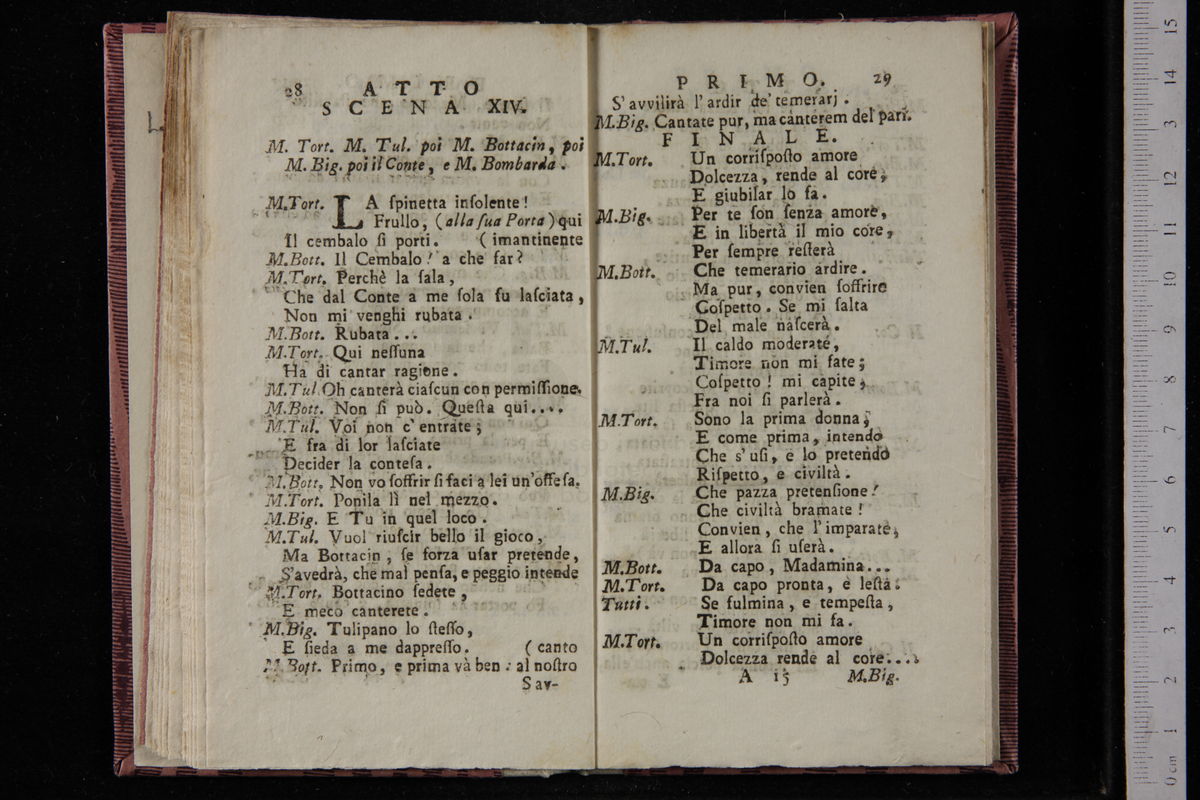 28 ATTO
SCENA XIV.
M. Tort. M. Tul. poi M. Bottacin, poi
M. Big. poi il Conte, e M. Bombarda.
M.Tort. LA ſpinetta inſolente!
Frullo, (alla ſua Porta) qui
Il cembalo ſi porti. (imantinente
M.Bott. Il Cembalo! a che far?
M.Tort. Perchè la ſala,
Che dal Conte a me ſola fu laſciata,
Non mi venghi rubata.
M.Bott. Rubata...
M.Tort. Qui neſſuna
Ha di cantar ragione.
M.Tul. Oh canterà ciaſcun con permiſſione.
M.Bott. Non ſi può. Queſta qui....
M.Tul. Voi non c'entrate;
E fra di lor laſciate
Decider la conteſa.
M.Bott. Non vo ſoffrir ſi faci a lei un'offeſa.
M.Tort. Ponila lì nel mezzo.
M.Big. E Tu in quel loco.
M.Tul. Vuol riuſcir bello il gioco,
Ma Bottacin, ſe forza uſar pretende,
S'avedrà, che mal penſa, e peggio intende
M.Tort. Bottacino ſedete,
E meco canterete.
M.Big. Tulipano lo ſteſſo,
E ſieda a me dappreſſo. (canto
M.Bott. Primo, e prima và ben: al noſtro
S'av-
PRIMO. 29
S'avvilirà l'ardir de' temerarj.
M.Big. Cantate pur, ma canterem del pari.
FINALE.
M.Tort. Un corriſpoſto amore
Dolcezza, rende al core,
E giubilar lo fa.
M.Big. Per te ſon ſenza amore,
E in libertà il mio core,
Per ſempre reſterà
M.Bott. Che temerario ardire.
Ma pur, convien ſoffrire
Coſpetto. Se mi ſalta
Del male naſcerà.
M.Tul. Il caldo moderate,
Timore non mi fate;
Coſpetto! mi capite,
Fra noi ſi parlerà.
M.Tort. Sono la prima donna;
E come prima, intendo
Che s'uſi, e lo pretendo
Riſpetto, e civiltà.
M.Big. Che pazza pretenſione!
Che civiltà bramate!
Convien, che l'imparate,
E allora ſi uſerà.
M.Bott. Da capo, Madamina...
M.Tort. Da capo pronta, e leſta.
Tutti. Se fulmina, e tempeſta,
Timore non mi fa.
M.Tort. Un corriſpoſto amore
Dolcezza rende al core....
A 15 M.Big.
0 cm 1 2 3 4 5 6 7 8 9 10 11 12 13 14 15